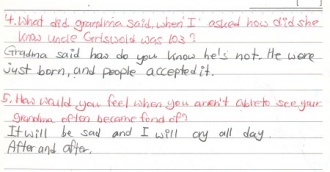 4. What did grandma said, when I asked how did she
know uncle Griswold was 103?
Gradma said how do you know he's not. He were
just born, and people accepted it.
5. How would you feel when you aren't able to see your
grandma often became fond of?
It will be sad and I will cry all day.
After and after.